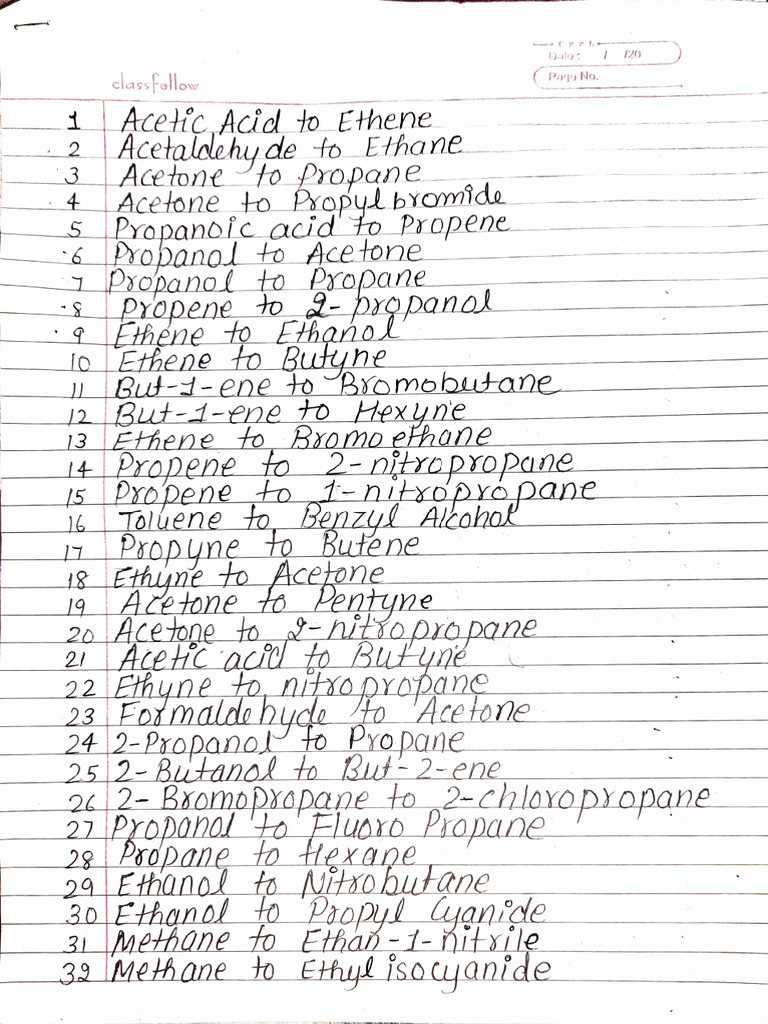 CPPL
Date : / /20
classfellow
Page No.
1 Acetic Acid to Ethene
2 Acetaldehyde to Ethane
3 Acetone to Propane
4 Acetone to Propyl bromide
5 Propanoic acid to Propene
6 Propanol to Acetone
7 Propanol to Propane
8 Propene to 2-propanol
9 Ethene to Ethanol
10 Ethene to Butyne
11 But-1-ene to Bromobutane
12 But-1-ene to Hexyne
13 Ethene to Bromoethane
14 Propene to 2-nitropropane
15 Propene to 1-nitropropane
16 Toluene to Benzyl Alcohol
17 Propyne to Butene
18 Ethyne to Acetone
19 Acetone to Pentyne
20 Acetone to 2-nitropropane
21 Acetic acid to Butyne
22 Ethyne to nitropropane
23 Formaldehyde to Acetone
24 2-Propanol to Propane
25 2-Butanol to But-2-ene
26 2-Bromopropane to 2-chloropropane
27 Propanol to Fluoro Propane
28 Propane to Hexane
29 Ethanol to Nitrobutane
30 Ethanol to Propyl Cyanide
31 Methane to Ethan-1-nitrile
32 Methane to Ethyl isocyanide